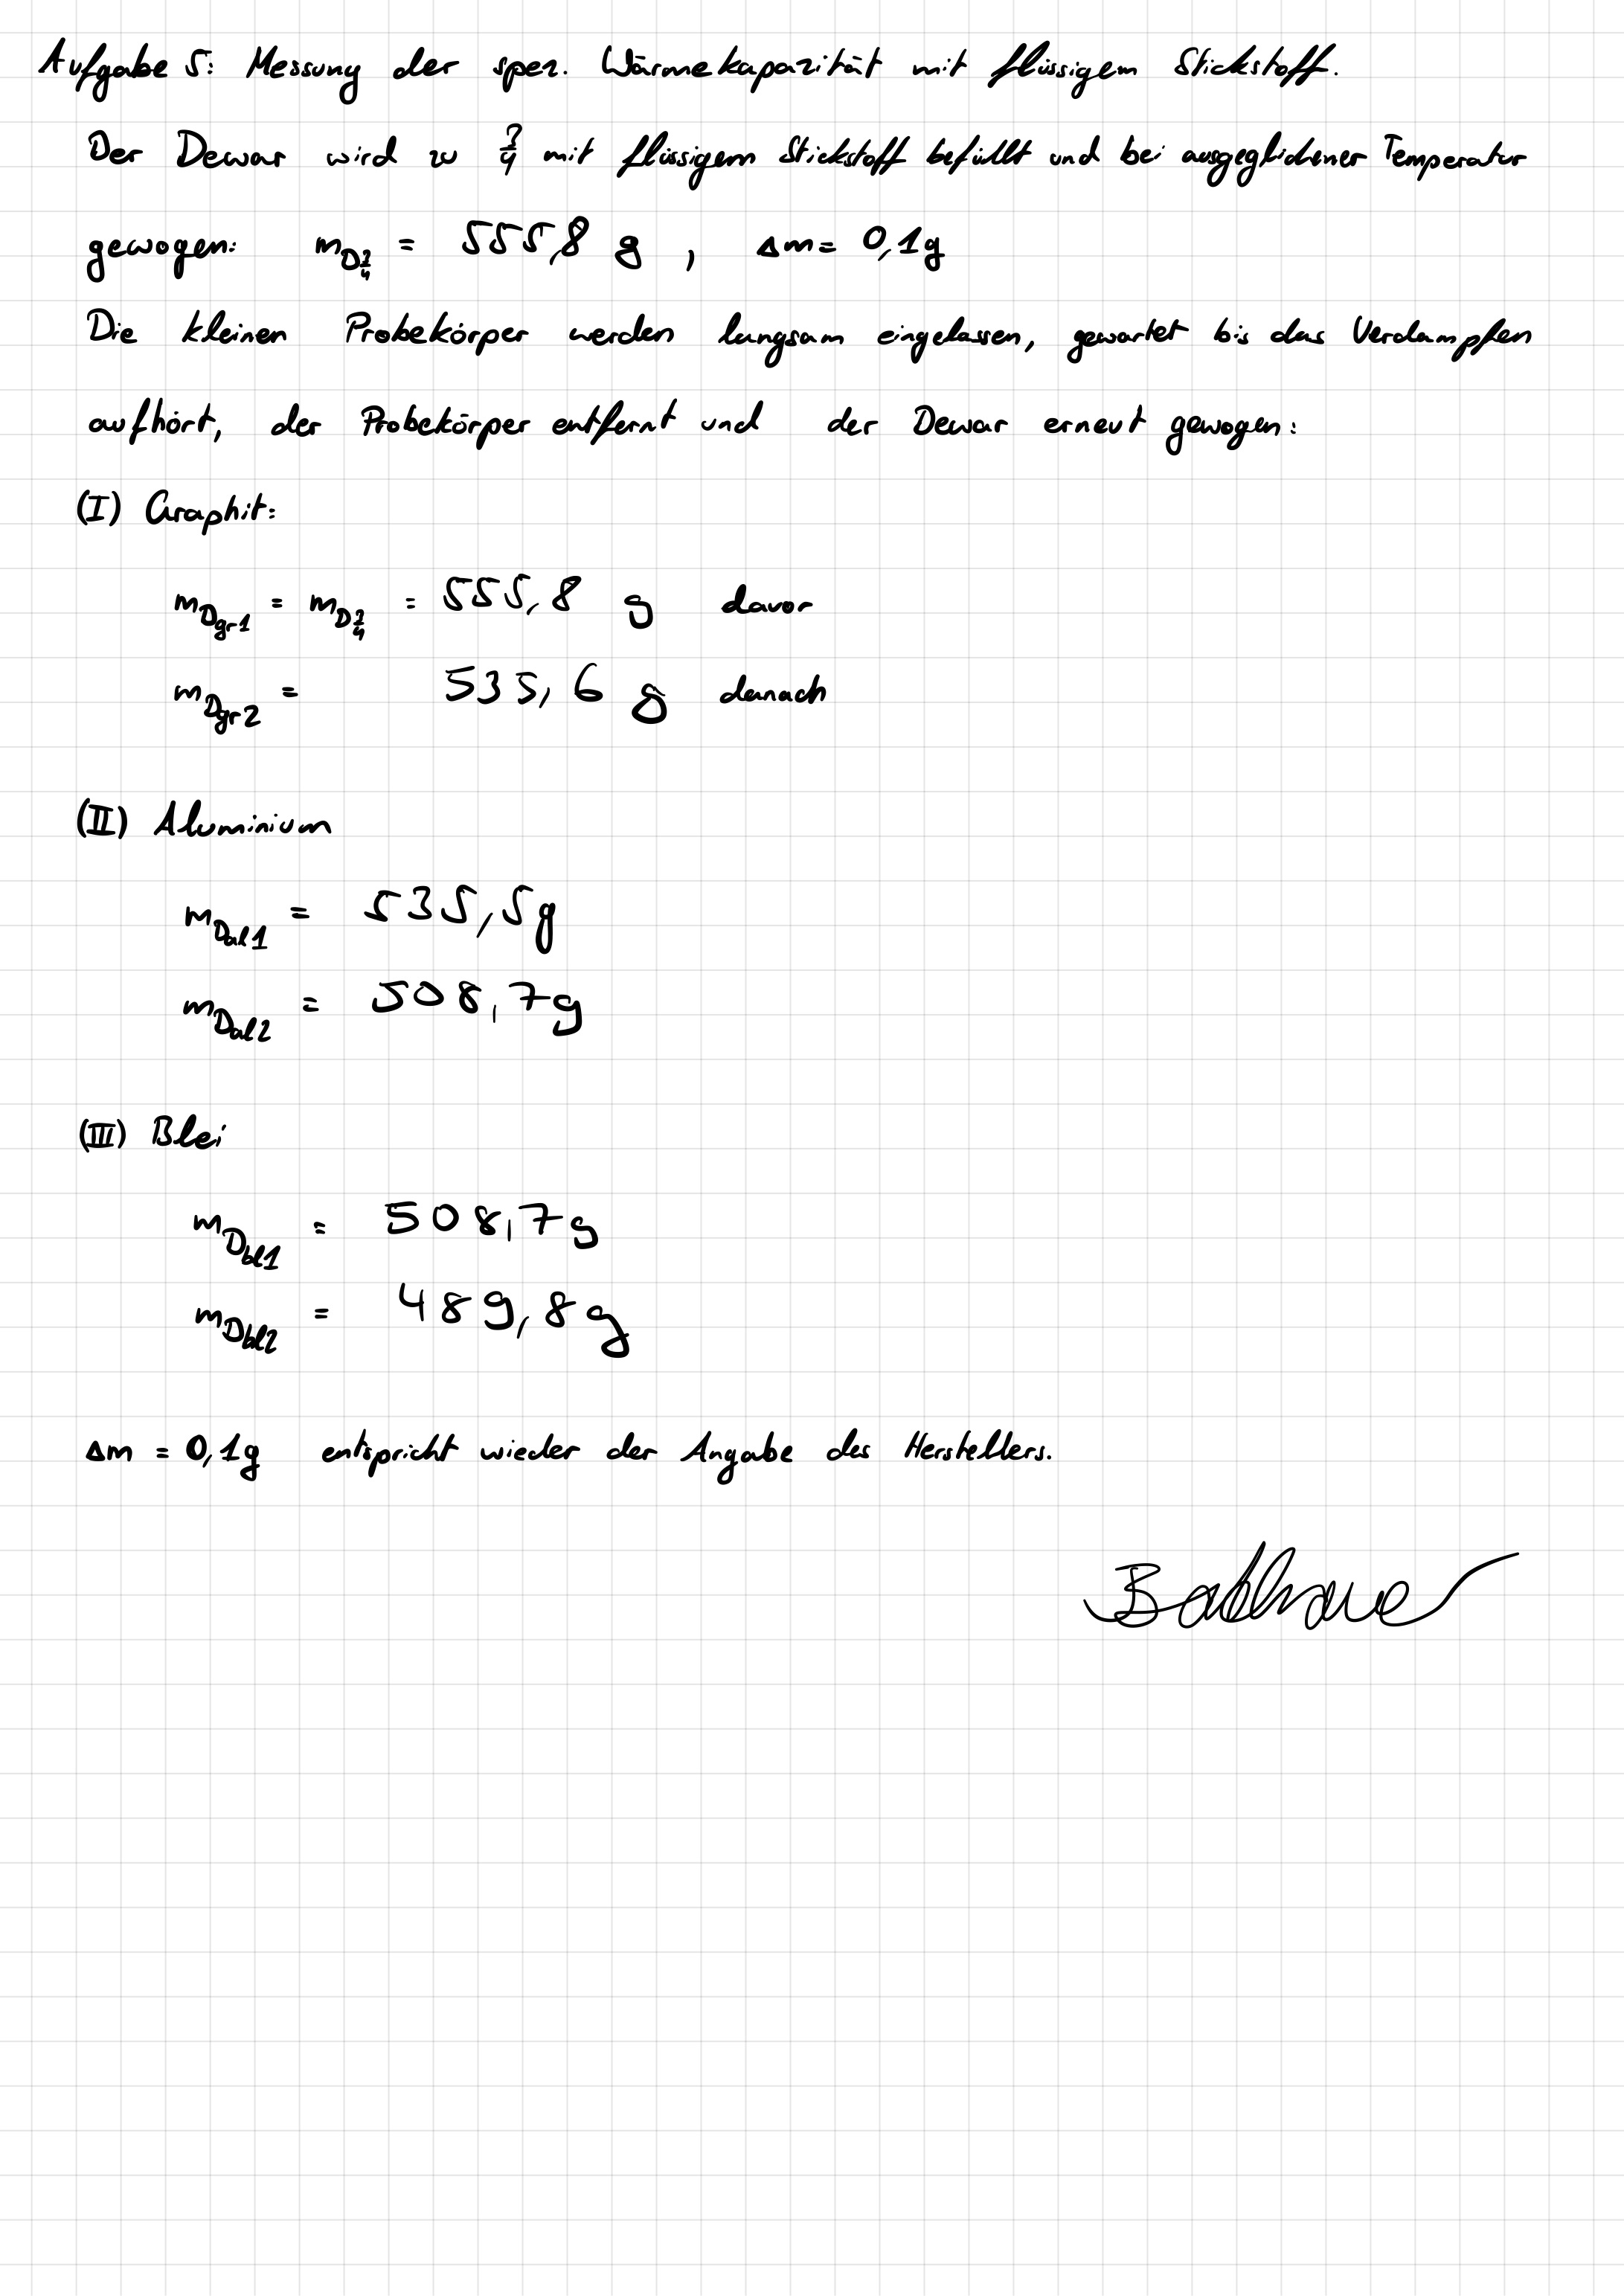 Aufgabe 5: Messung der spez. Wärmekapazität mit flüssigem Stickstoff.
Der Dewar wird zu 3/4 mit flüssigem Stickstoff befüllt und bei ausgeglichener Temperatur
gewogen: m_D3/4 = 555,8 g , Δm = 0,1g
Die kleinen Probekörper werden langsam eingelassen, gewartet bis das Verdampfen
aufhört, der Probekörper entfernt und der Dewar erneut gewogen:
(I) Graphit:
m_Dgr1 = m_D3/4 = 555,8 g davor
m_Dgr2 = 535,6 g danach
(II) Aluminium
m_Dal1 = 535,5g
m_Dal2 = 508,7g
(III) Blei
m_Dbl1 = 508,7g
m_Dbl2 = 489,8g
Δm = 0,1g entspricht wieder der Angabe des Herstellers.